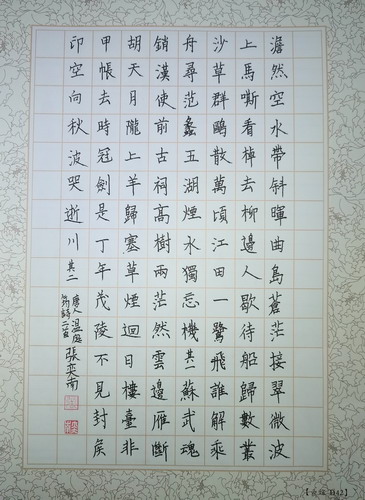 澹然空水帶斜暉曲島蒼茫接翠微波
上馬嘶看棹去柳邊人歇待船歸數叢
沙草群鷗散萬頃江田一鷺飛誰解乘
舟尋范蠡五湖煙水獨忘機其一蘇武魂
銷漢使前古祠高樹兩茫然雲邊雁斷
胡天月隴上羊歸塞草煙迴日樓臺非
甲帳去時冠劍是丁年茂陵不見封侯
印空向秋波哭逝川其二
唐人溫庭
筠詩二首
張奕南